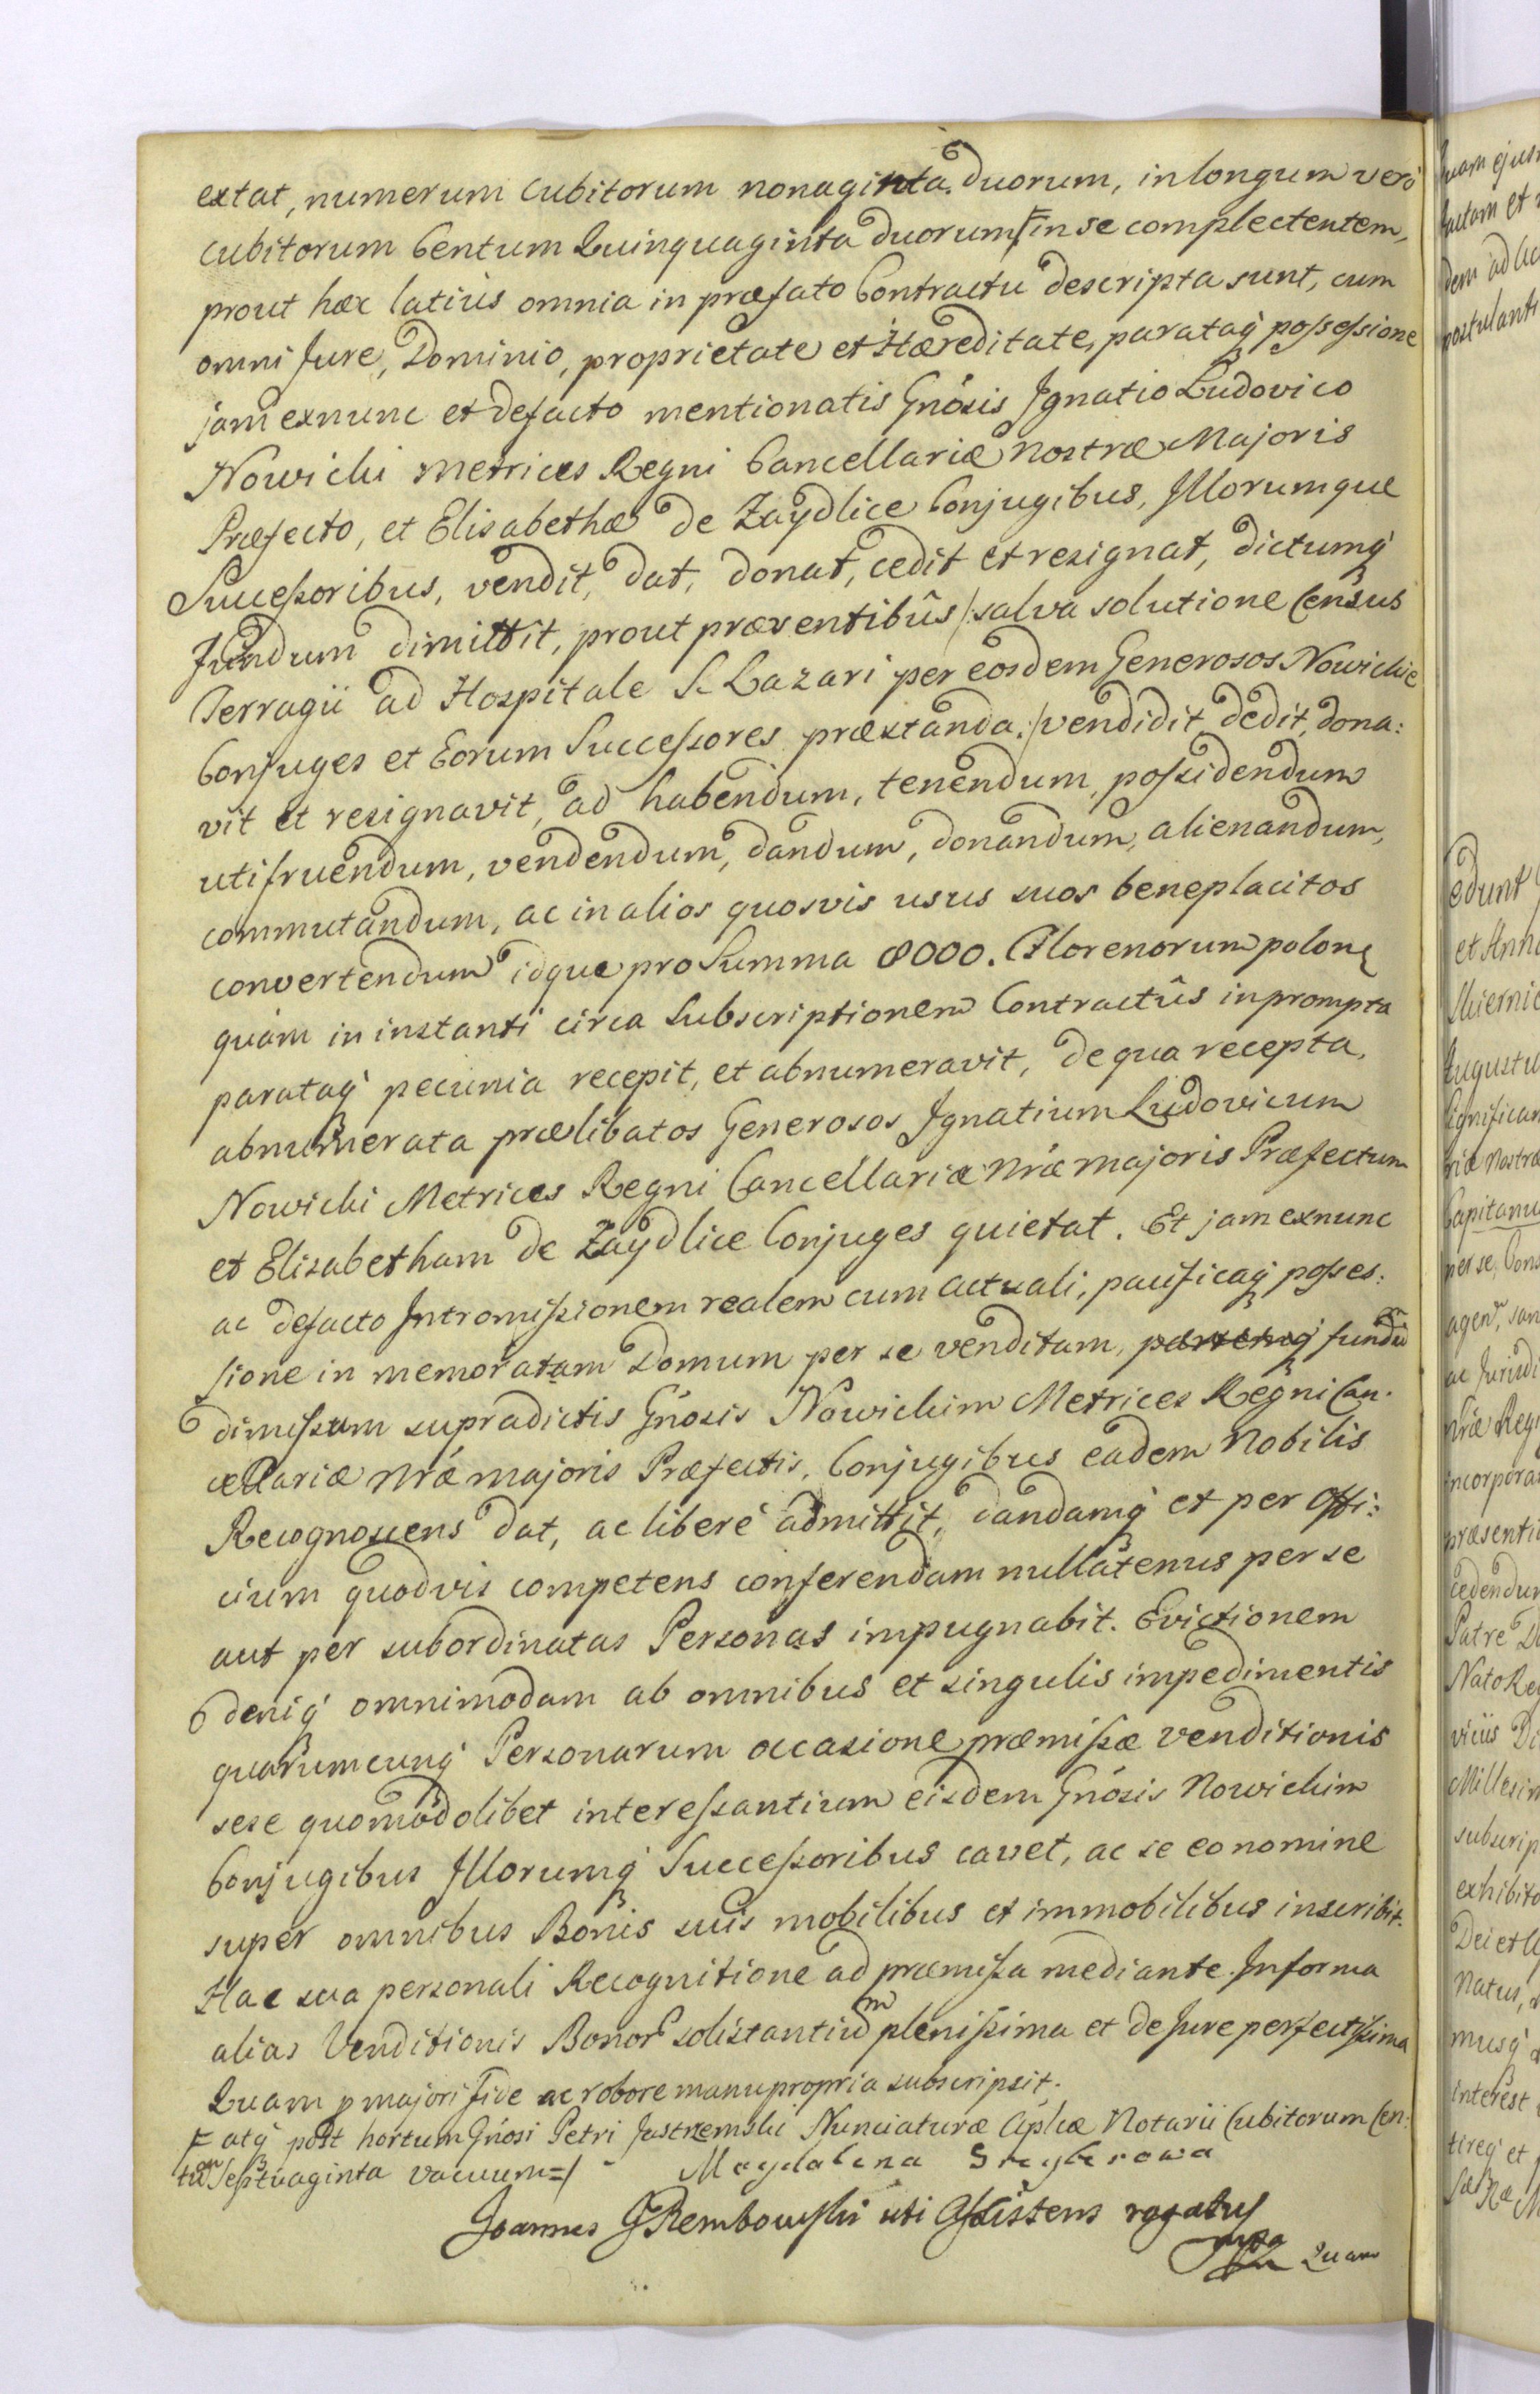 extat, numerum Cubitorum nonaginta duorum, in longum verò
cubitorum Centum Quinquaginta duorum F in se complectentem,
prout hæc latius omnia in præfato Contractu descripta sunt, cum
omni Jure, Dominio, proprietate et Hæreditate, parataq́ possessione
jam exnunc et defacto mentionatis Gńosis Ignatio Ludovico
Nowicki Metrices Regni Cancellariæ Nostræ Majoris
Præfecto, et Elisabethæ de Zaydlice Conjugibus, Illorumque
Successoribus, vendit, dat, donat, cedit et resignat, dictumq́
Fundum dimittit, prout præsentibûs /: salva solutione Census
Terragii ad Hospitale S. Lazari per eosdem Generosos Nowickie
Conjuges et Eorum Successores præstanda :/ vendidit, dedit, dona:
vit et resignavit, ad habendum, tenendum, possidendum
utifruendum, vendendum, dandum, donandum, alienandum,
commutandum, ac in alios quosvis usus suos beneplacitos
convertendum idque pro Summa 8000. Florenorum polon
quam in instanti circa Subscriptionem Contractûs in prompta
parataq́ pecunia recepit, et abnumeravit, de qua recepta,
abnumerata prælibatos Generosos Ignatium Ludovicum
Nowicki Metrices Regni Cancellariæ Nræ majoris Præfectum
et Elisabetham de Zaydlice Conjuges quietat. Et jam exnunc
ac defacto Intromissionem realem cum actuali, pacificaq́ posses:
sione in memoratam Domum per se venditam, fundum
dimissum supradictis Gńosis Nowickim Metrices Regni Can:
cellariæ Nræ majoris Præfectis, Conjugibus eadem Nobilis
Recognoscens dat, ac liberé admittit, dandamq́ et per Offi:
cium quodvis competens conferendam nullatenus per se
aut per subordinatas Personas impugnabit. Evictionem
deniq́ omnimodam ab omnibus et singulis impedimentis
quarumcunq́ Personarum occasione præmissæ venditionis
sese quomodolibet interessantium eisdem Gńosis Nowickim
Conjugibus Illorumq́ Successoribus cavet, ac se eo nomine
super omnibus Bonis suis mobilibus et immobilibus inscribit.
Hac sua personali Recognitione ad præmissa mediante. In forma
alias Venditionis Bonor solistantium plenissima et de Jure perfectissima
Quam p majori fide ac robore manu propria subscripsit.
F atq́ post hortum Gńosi Petri Jastrzemski Nunciaturæ Aplicæ Notarii Cubitorum Cen:
tum Septuaginta vacuum =/ Magdalena
Joannes Rembowski uti Assistens rogatus
mpa
Quam